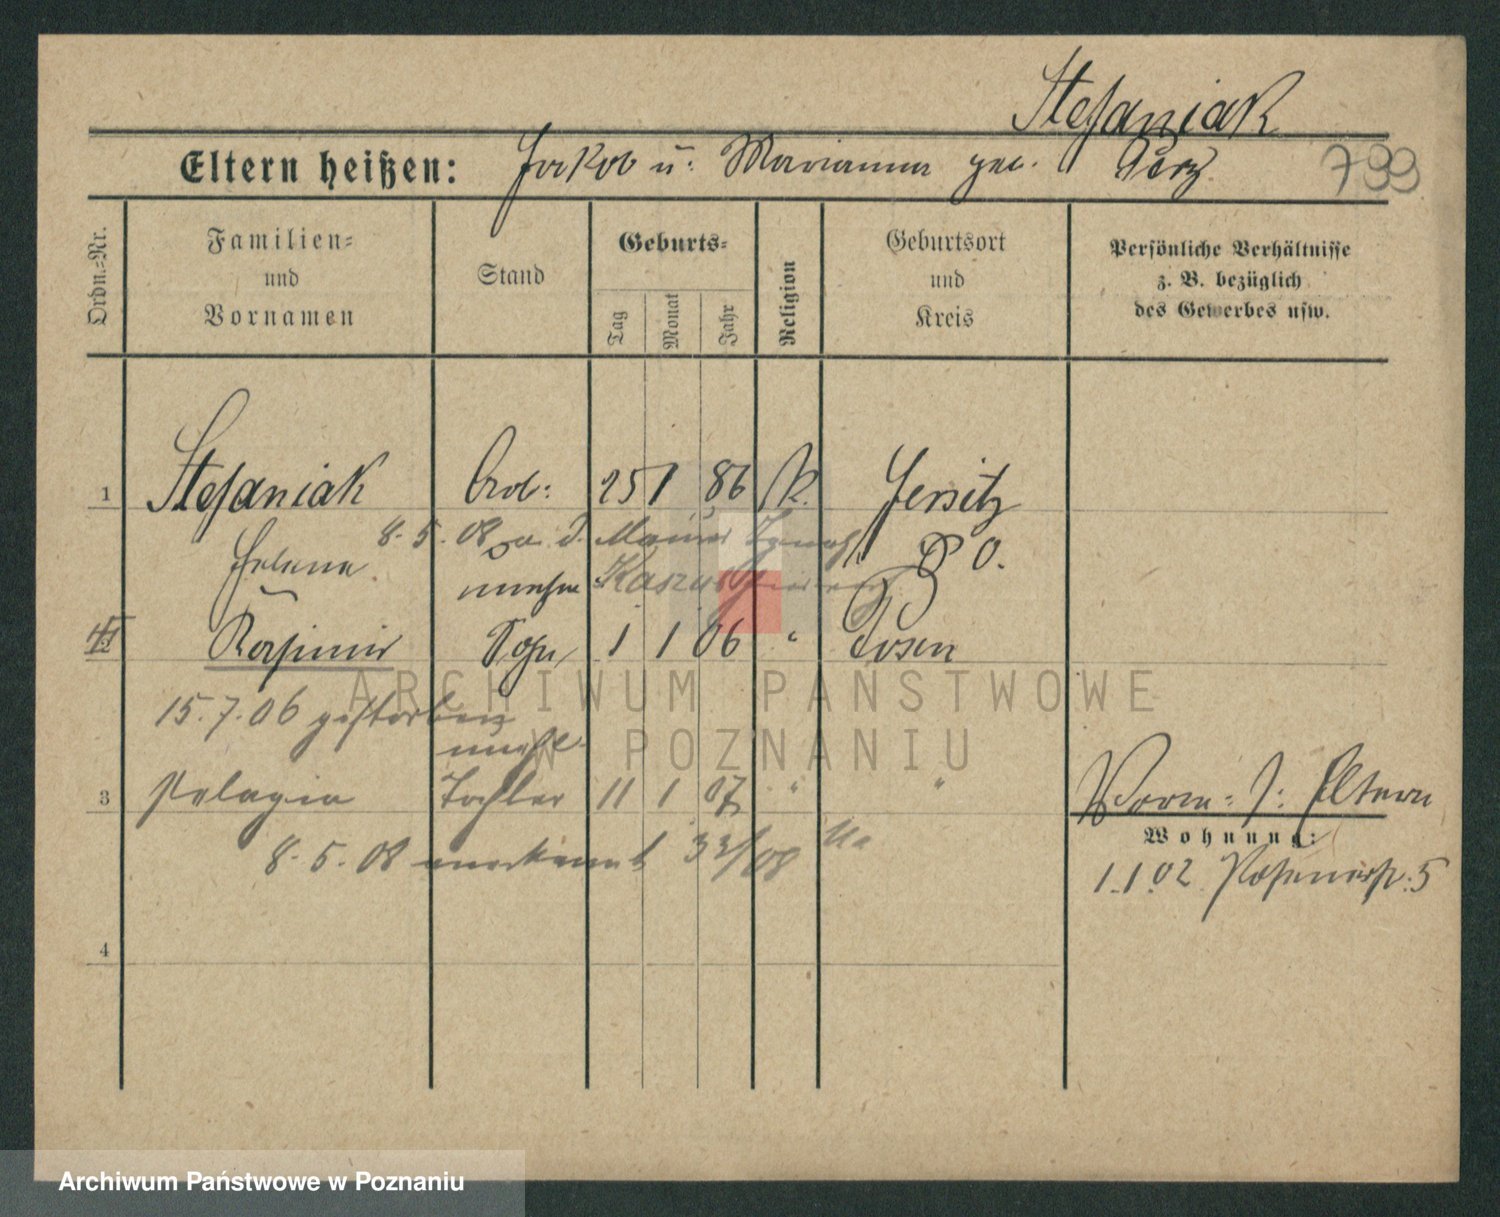 Stefaniak
Eltern heißen: Jakob u. Marianna geb. Perz 799
Ordn.=Nr.
Familien=
und
Vornamen
Stand
Geburts=
Tag
Monat
Jahr
Religion
Geburtsort
und
Kreis
Persönliche Verhältnisse
z. B. bezüglich
des Gewerbes usw.
1 Stefaniak Arb: 25 1 86 K. Jersitz
8. 5. 08 a. d. Maurer Ignatz P. O.
Helena
Kasimir Sohn 1 1 06 " Posen
15. 7. 06 gestorben
unehl.
3 Pelagia Tochter 11 1 07 " " Vorm: s: Eltern
Wohnung:
8. 5. 08 anerkannt
1. 1. 02 Posenerstr. 5
4
ARCHIWUM PAŃSTWOWE
W POZNANIU
Archiwum Państwowe w Poznaniu